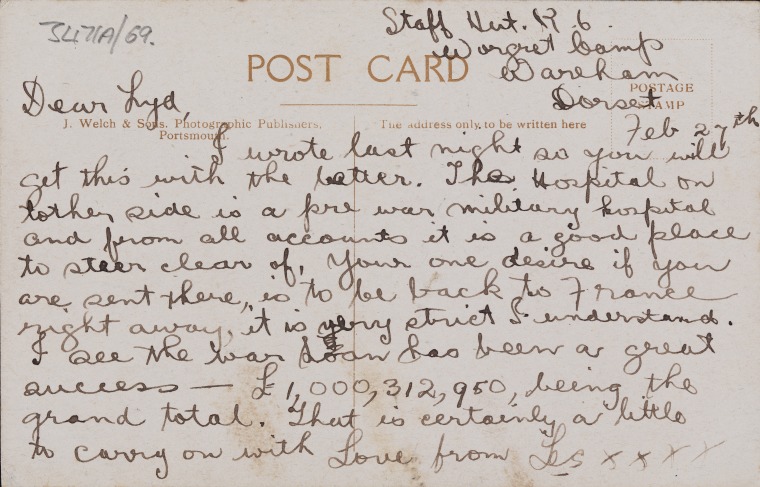 3L171A/69.
Staff Hut. R 6.
Worgret Camp
Wareham
Dorset
POST CARD
POSTAGE
STAMP
Dear Lyd,
J. Welch & Sons, Photographic Publishers,
Portsmouth.
The address only, to be written here
Feb 27th
I wrote last night so you will
get this with the letter. The Hospital on
tother side is a pre war military hospital
and from all accounts it is a good place
to steer clear of. Your one desire if you
are sent there, is to be back to France
right away, it is very strict I understand.
I see the war loan has been a great
success — £1,000,312,950, being the
grand total. That is certainly a little
to carry on with Love from Les x x x x